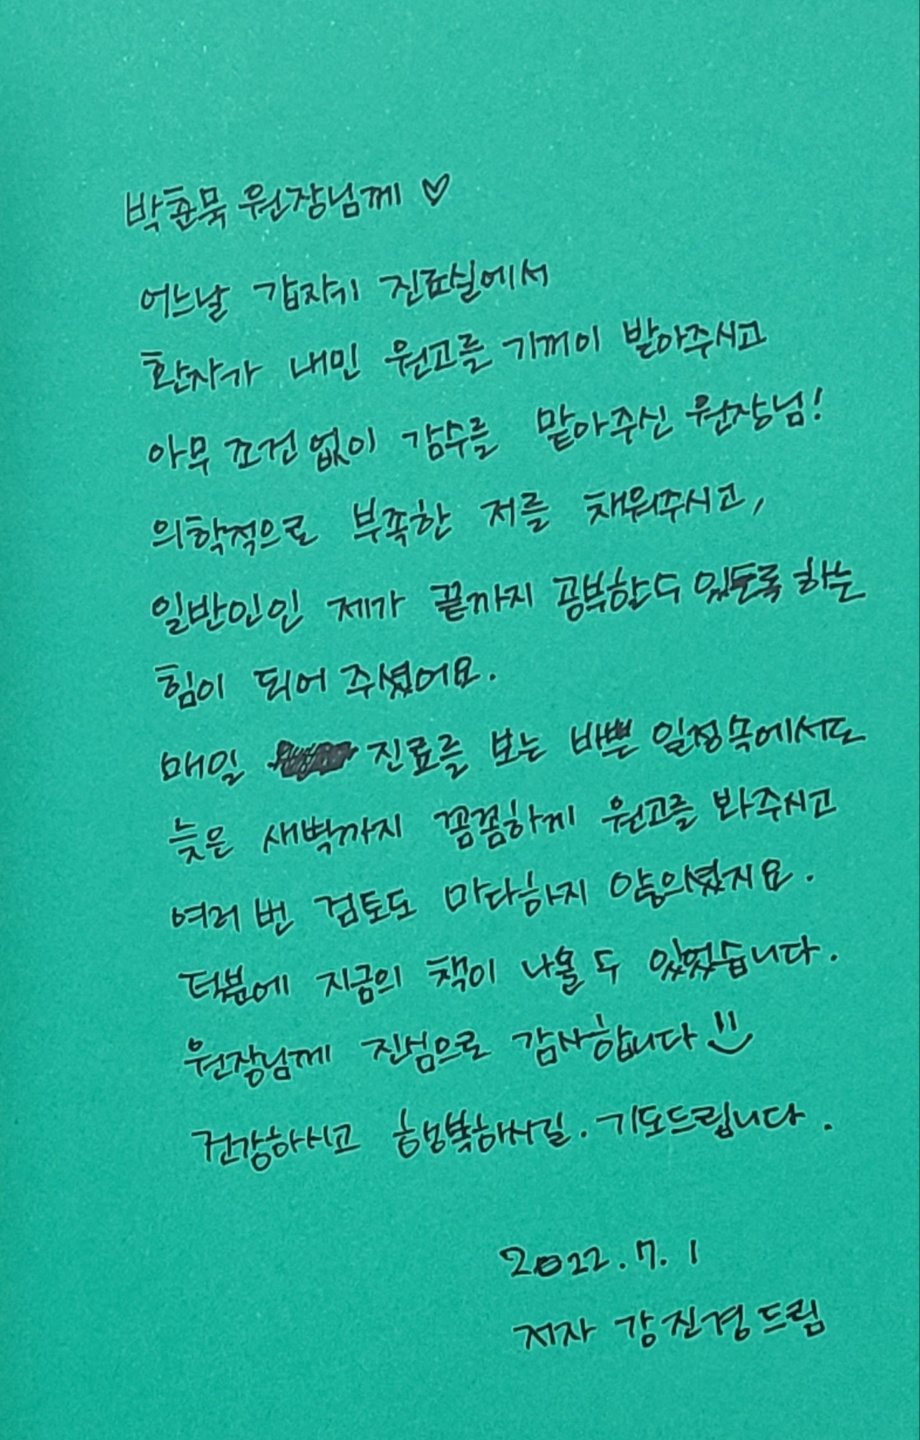 박춘묵 원장님께 ♡
어느날 갑자기 진료실에서
환자가 내민 원고를 기꺼이 받아주시고
아무 조건 없이 감수를 맡아주신 원장님!
의학적으로 부족한 저를 채워주시고,
일반인인 제가 끝까지 공부할 수 있도록 하는
힘이 되어 주셨어요.
매일 진료를 보는 바쁜 일정 속에서도
늦은 새벽까지 꼼꼼하게 원고를 봐주시고
여러 번 검토도 마다하지 않으셨지요.
덕분에 지금의 책이 나올 수 있었습니다.
원장님께 진심으로 감사합니다
건강하시고 행복하시길. 기도드립니다.
2022. 7. 1
저자 강진경 드림